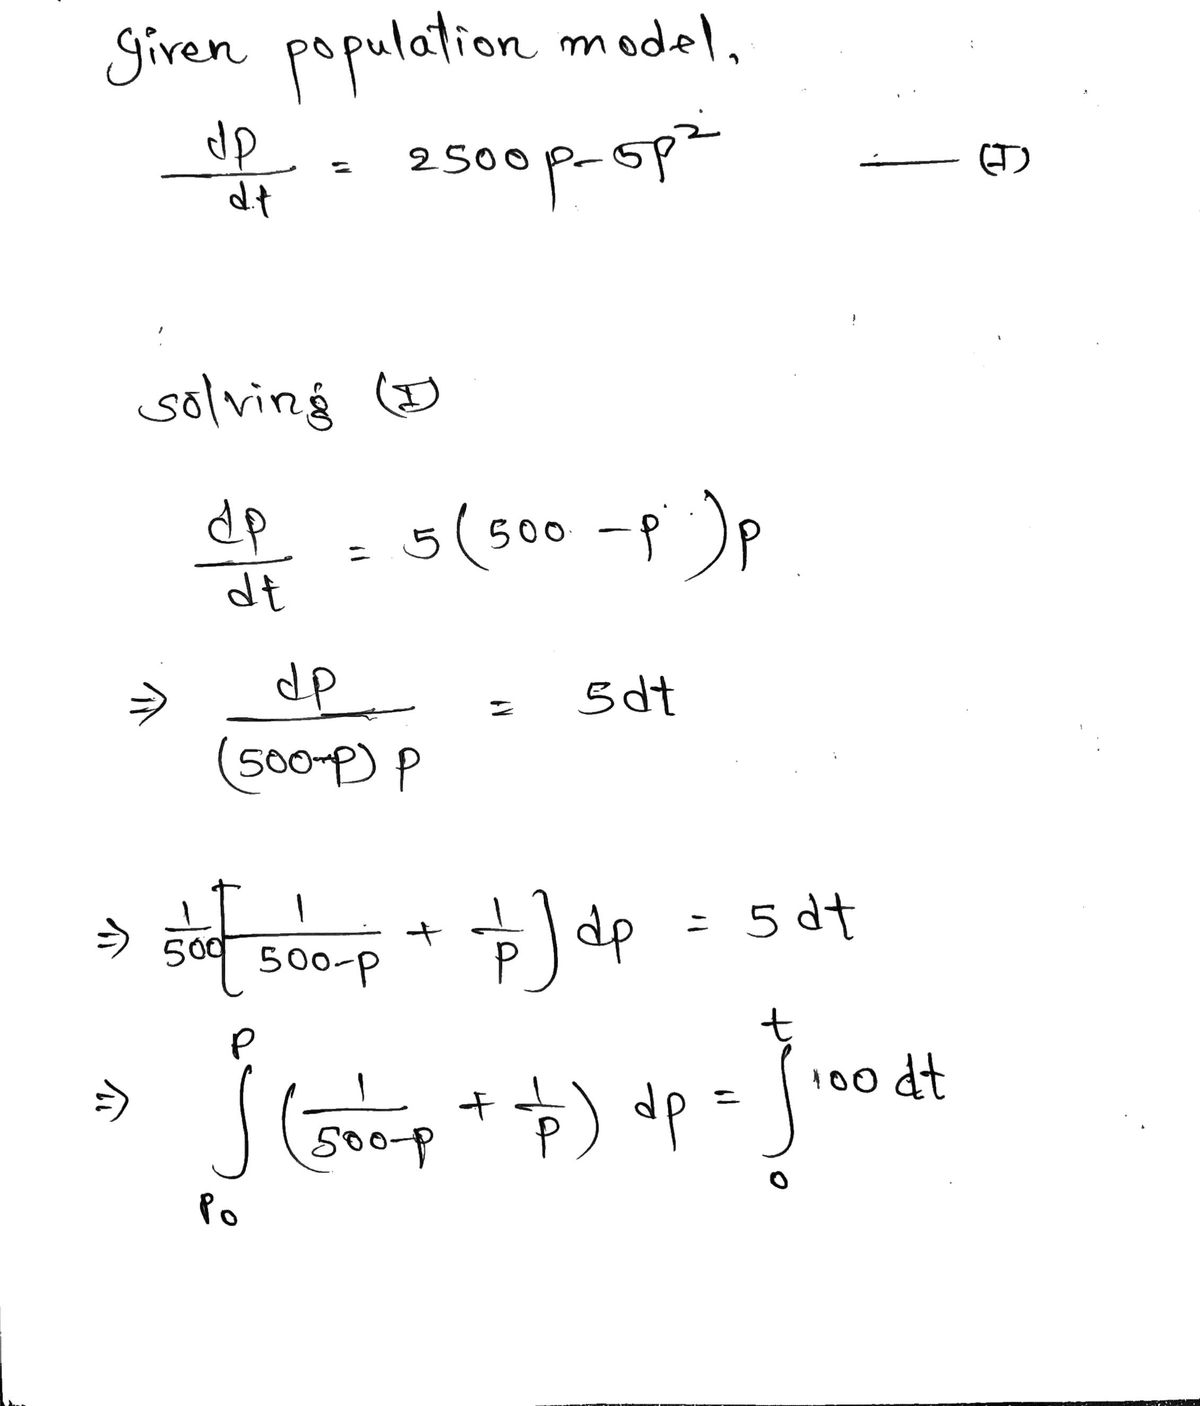 given population model,
dp/dt = 2500p - 5p² —— (I)
solving (I)
dp/dt = 5(500 - p)p
⇒ dp/((500-p) p) = 5dt
⇒ 1/500 [1/(500-p) + 1/p] dp = 5 dt
⇒ ∫_{p₀}^{p} (1/(500-p) + 1/p) dp = ∫_{0}^{t} 100 dt